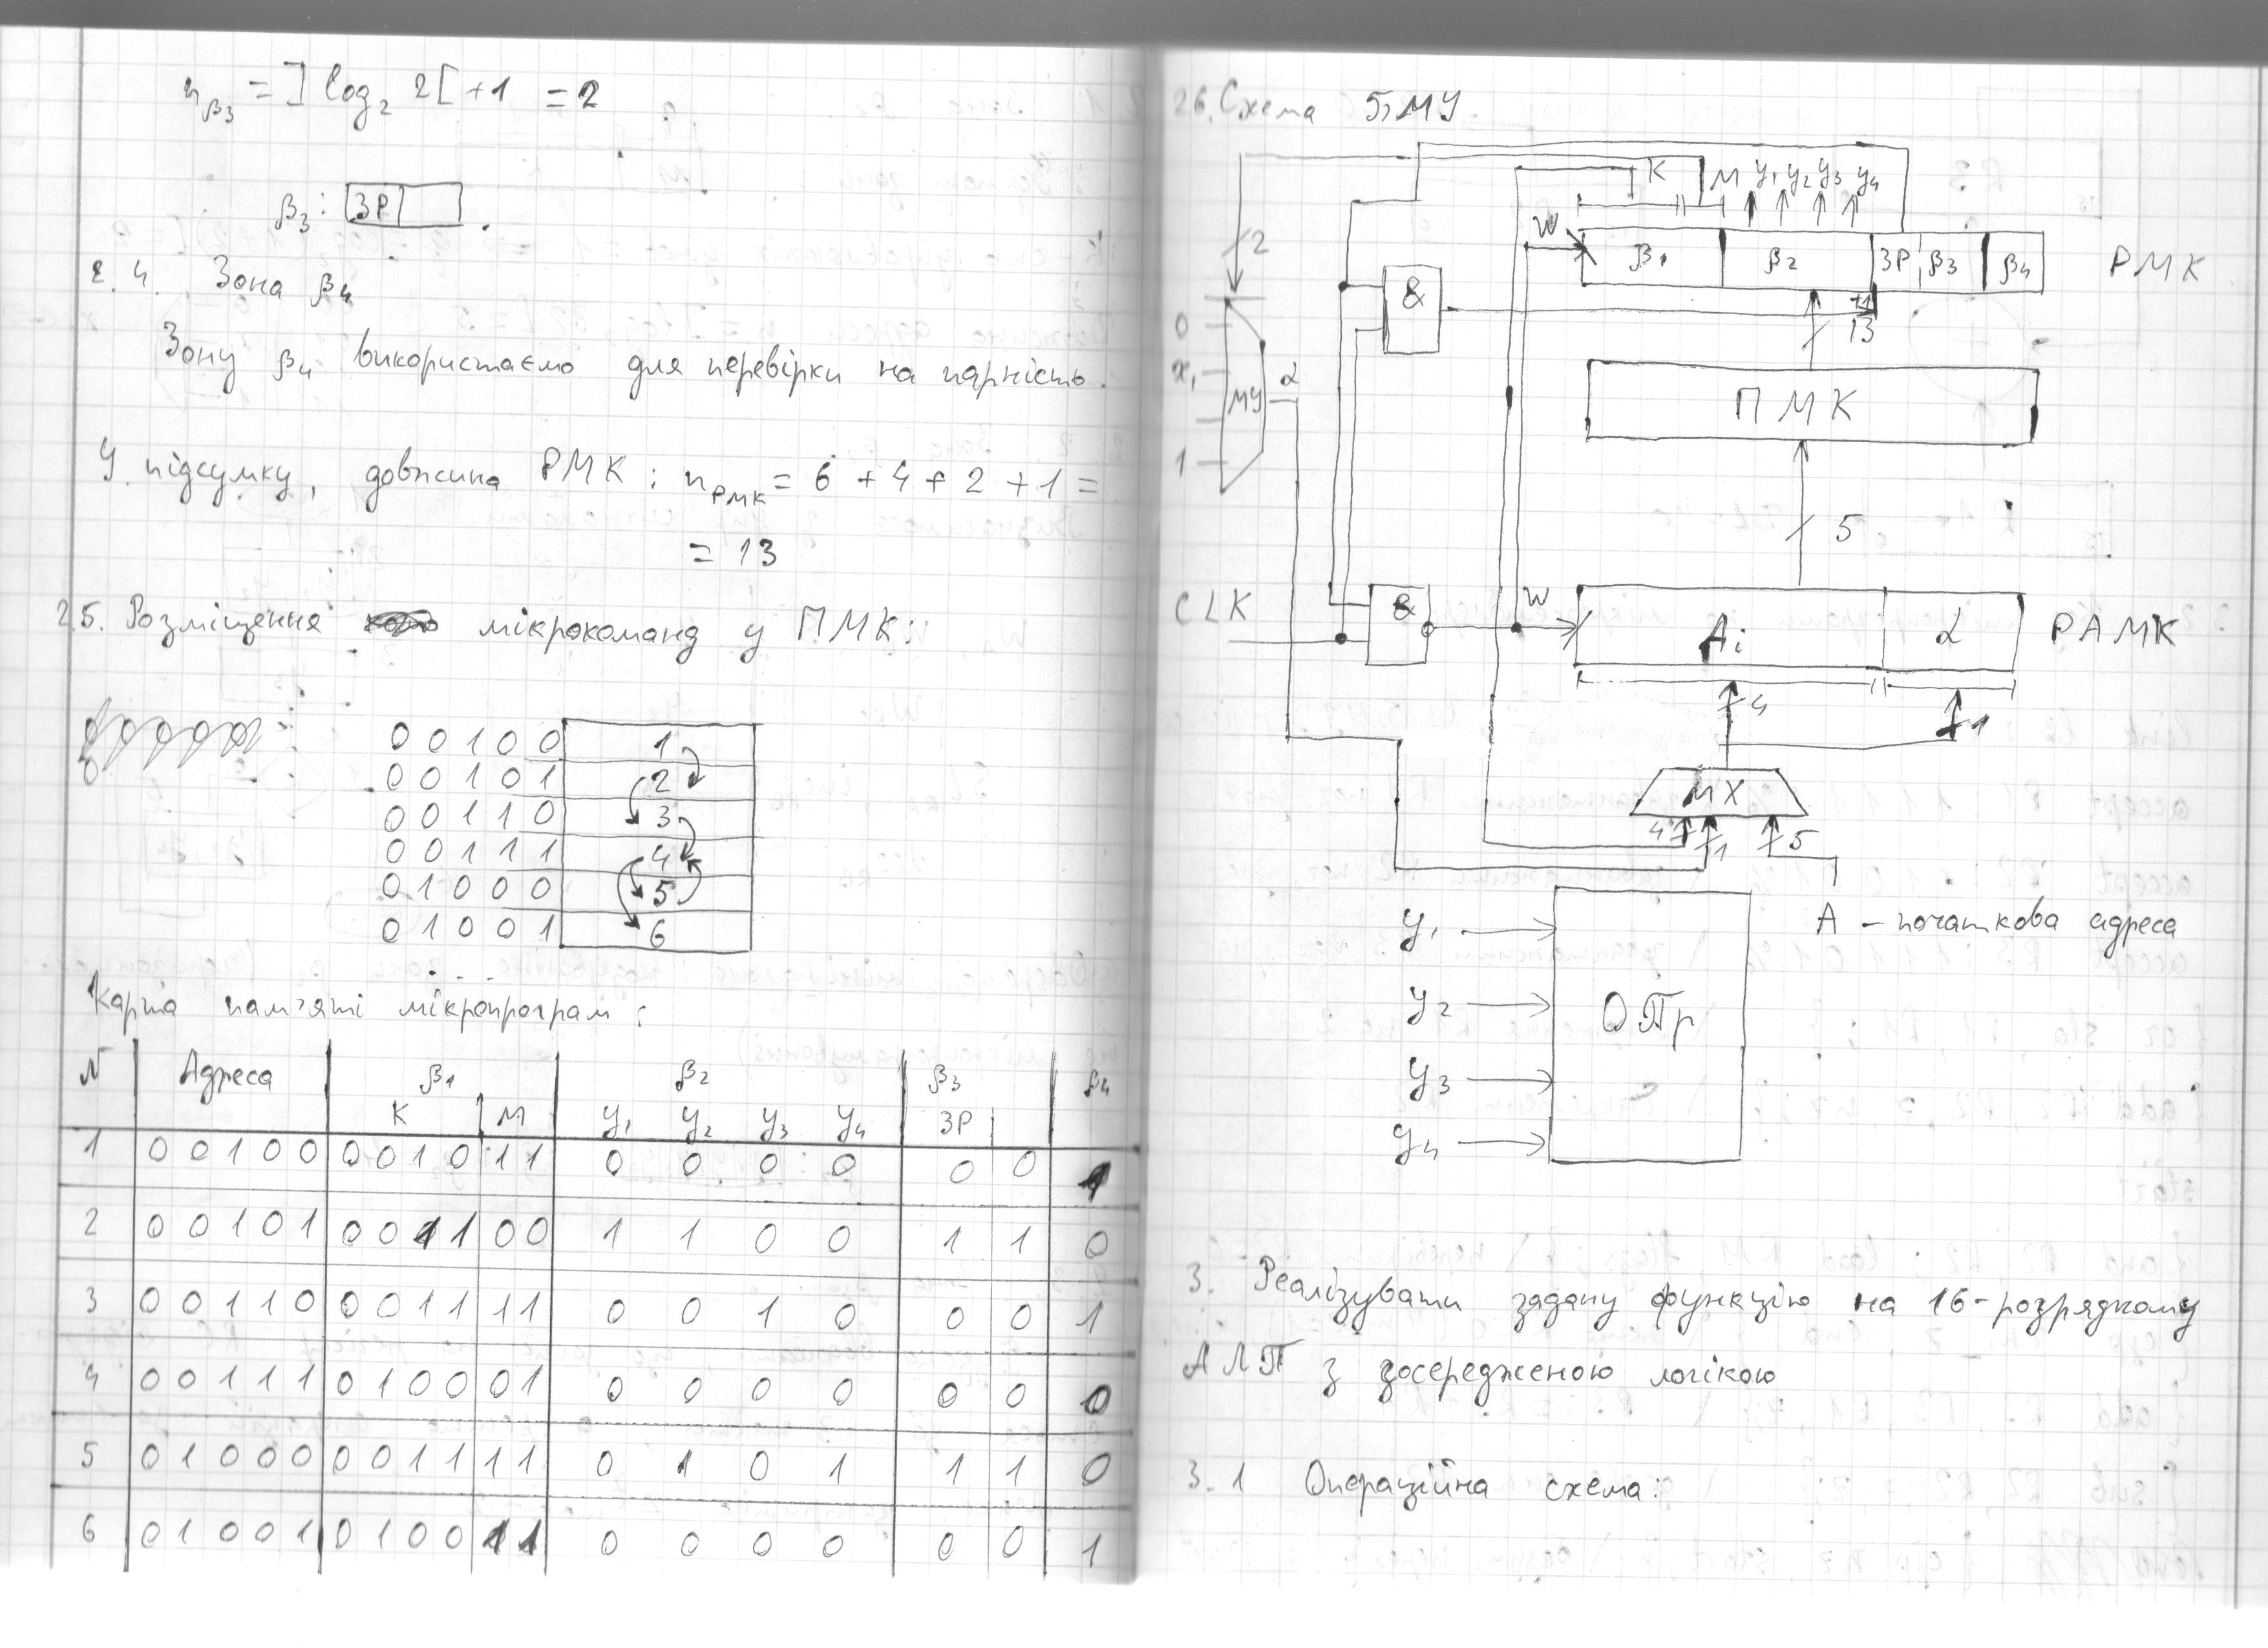 n_β3 = ]log₂ 2[ + 1 = 2
β₃: ЗР
2.4. Зона β₄
Зону β₄ використаємо для перевірки на парність.
У підсумку, довжина РМК: n_РМК = 6 + 4 + 2 + 1 =
= 13
2.5. Розміщення мікрокоманд у ПМК:
0 0 1 0 0 1
0 0 1 0 1 2
0 0 1 1 0 3
0 0 1 1 1 4
0 1 0 0 0 5
0 1 0 0 1 6
...
Карта пам'яті мікропрограм:
N Адреса β₁ β₂ β₃ β₄
К М y₁ y₂ y₃ y₄ ЗР
1 0 0 1 0 0 0 0 1 0 1 1 0 0 0 0 0 0 1
2 0 0 1 0 1 0 0 1 1 0 0 1 1 0 0 1 1 0
3 0 0 1 1 0 0 0 1 1 1 1 0 0 1 0 0 0 1
4 0 0 1 1 1 0 1 0 0 0 1 0 0 0 0 0 0 0
5 0 1 0 0 0 0 0 1 1 1 1 0 1 0 1 1 1 0
6 0 1 0 0 1 0 1 0 0 1 1 0 0 0 0 0 0 1
26. Схема БМУ
К М y₁ y₂ y₃ y₄
2 W β₁ β₂ ЗР β₃ β₄ РМК
&
+1
0
13
x₁
МУ α
ПМК
1
5
CLK & W Ai α РАМК
4 1
МХ
4 1 5
А - початкова адреса
y₁
y₂ ОПр
y₃
y₄
3. Реалізувати задану функцію на 16-розрядному
АЛП з зосередженою логікою
3.1 Операційна схема: